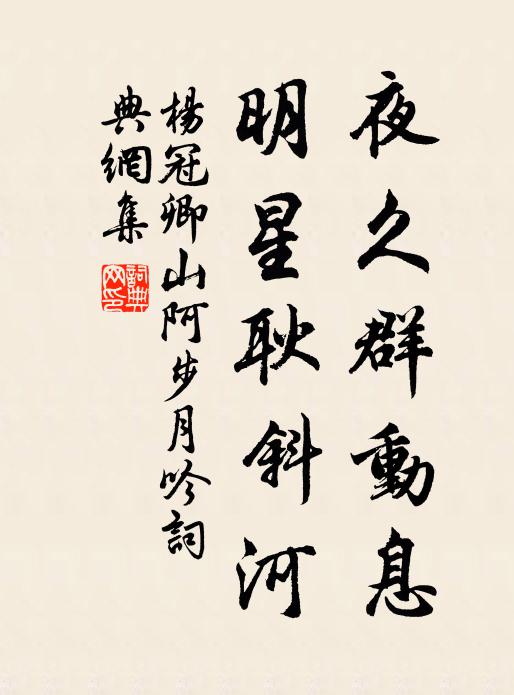 夜久群動息
明星耿斜河
楊冠卿山阿步月吟詞
典網集
詞典網印